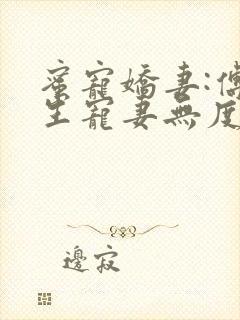 蜜寵嬌妻:傅
生寵妻無度
邊寂